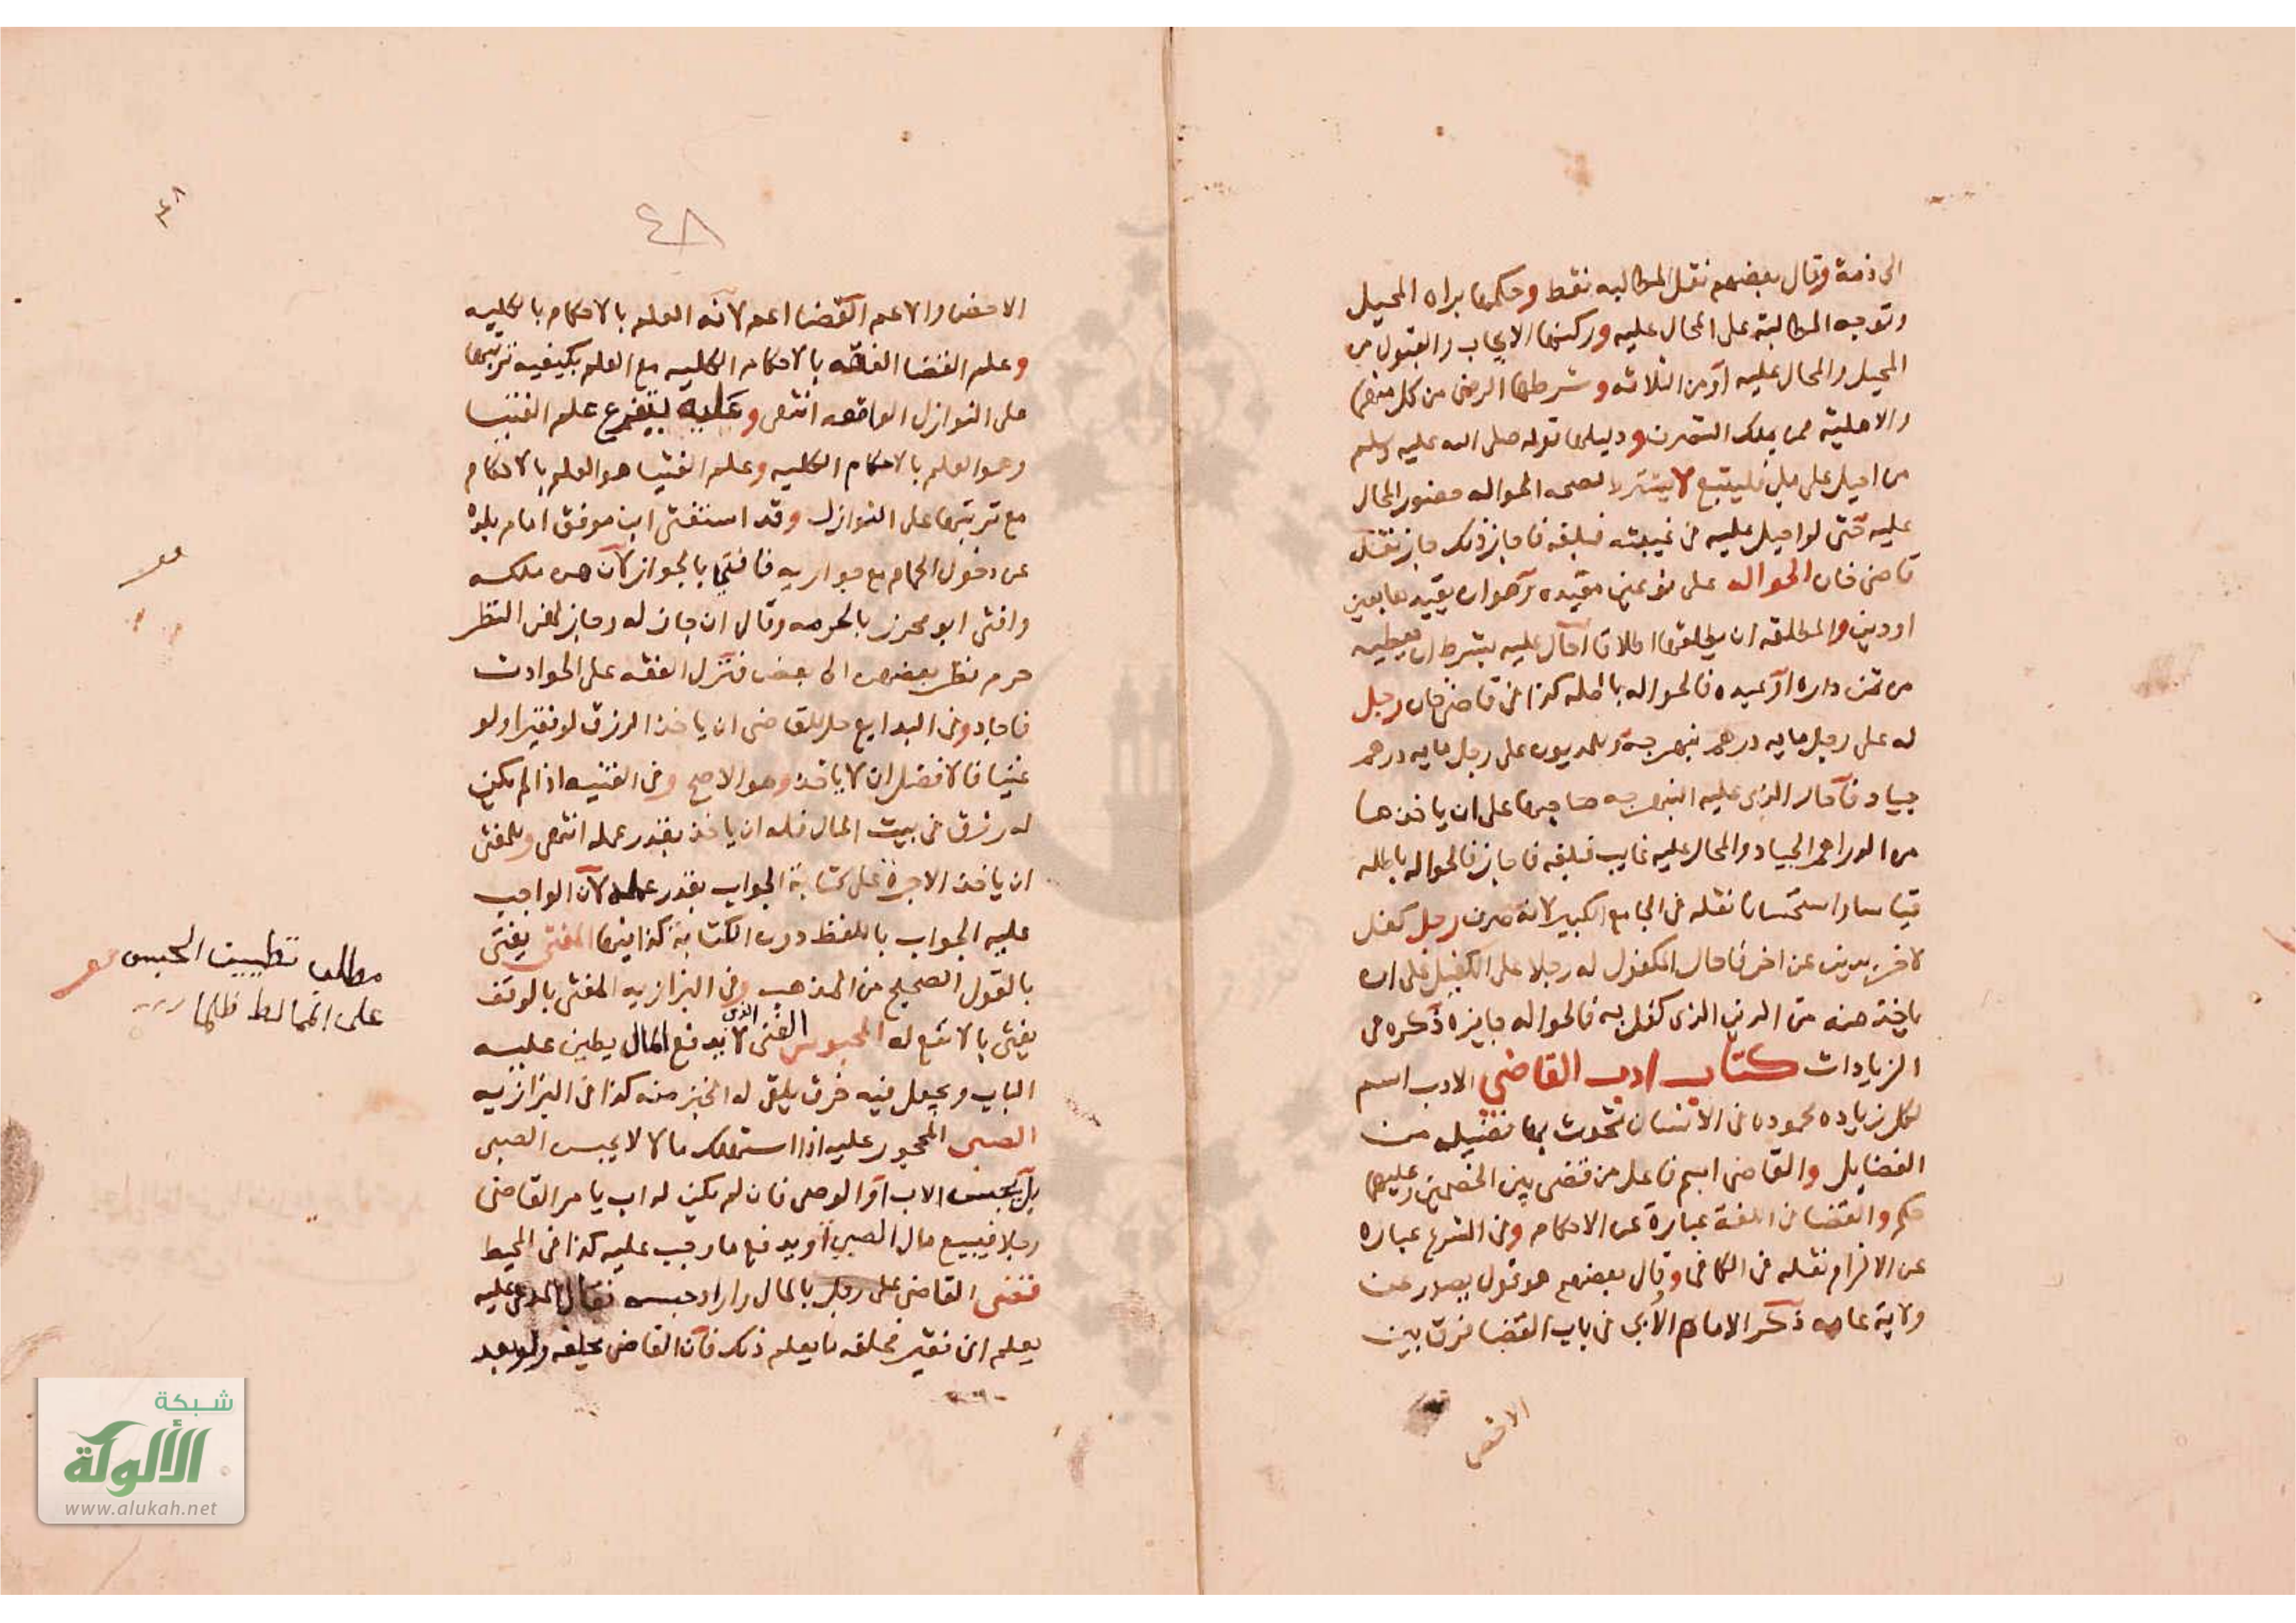 الى ذمة وقال بعضهم نقل المطالبه فقط وحكمها براه المحيل
وتوجه المطالبة على المحال عليه وركنها الايجاب والقبول من
المحيل والمحال عليه او من الثلاثه وشرطها الرضى من كل منهما
والاهلية ممن يملك التصرف ودليلها قوله صلى الله عليه وسلم
من احيل على ملي فليتبع لا يشترط لصحه الحواله حضور المحال
عليه حتى لو احيل عليه في غيبته فبلغه فاجاز ذلك جاز نقله
قاضي خان الحواله على نوعين مقيده وهو ان يقيدها بعين
او دين والمطلقه ان يطلقها اطلاقا احال عليه بشرط ان يعطيه
من ثمن داره او عبده فالحواله باطله كذا في قاضي خان رجل
له على رجل مايه درهم نبهرجة وللمديون على رجل مايه درهم
جياد فاحال الذي عليه النبهرجه صاحبها على ان ياخذها
من الدراهم الجياد والمحال عليه غايب فبلغه فاجاز فالحواله باطله
قياسا واستحسانا نقله في الجامع الكبير لانه صرف رجل كفل
لاخر بدين عن اخر فاحال المكفول له رجلا على الكفيل على ان
ياخذ منه من الدين الذي كفل به فالحواله جايزه ذكره في
الزيادات كتاب ادب القاضي الادب اسم
لكل زياده محموده في الانسان تحدث بها فضيله من
الفضايل والقاضي اسم فاعل من قضى بين الخصمين وعليهما
حكم والقضا في اللغة عبارة عن الاحكام وفي الشرع عباره
عن الالزام نقله في الكافي وقال بعضهم هو قول يصدر عن
ولاية عامه ذكر الامام الابي في باب القضا فرق بين
الاخص
٤٨
٤٨
الاخص والاعم القضا اعم لانه العلم بالاحكام بالكليه
وعلم القضا الفقه بالاحكام الكليه مع العلم بكيفيه ترتبها
على النوازل الواقعه انتهى وعليه يتفرع علم الفتيا
وهو العلم بالاحكام الكليه وعلم الفتيا هو العلم بالاحكام
مع ترتبها على النوازل وقد استفتى ابن موفق امام بلده
عن دخول الحمام مع جواريه فافتى بالجواز لان هن ملكه
وافتى ابو محرز بالحرمه وقال ان جاز له وجاز لهن النظر
حرم نظر بعضهن الى بعض فنزل الفقه على الحوادث
فاجاد وفي البدايع حل للقاضي ان ياخذ الرزق لو فقيرا ولو
غنيا فالافضل ان لا ياخذ وهو الاصح وفي القنيه اذا لم يكن
له رزق في بيت المال فله ان ياخذ بقدر عمله انتهى وللمفتي
ان ياخذ الاجرة على كتابة الجواب بقدر عمله لان الواجب
عليه الجواب باللفظ دون الكتابة كذا فيها المفتي يفتي
بالقول الصحيح من المذهب وفي البزازيه المفتي بالوقف
يفتي بالانفع له المحبوس الغني الذي لا يدفع المال يطين عليه
الباب ويجعل فيه خرق يلقى له الخبز منه كذا في البزازيه
الصبي المحجور عليه اذا استهلك مالا لا يحبس الصبي
بل يحبس الاب او الوصي فان لم يكن له اب يامر القاضي
رجلا فيبيع مال الصبي او يدفع ما وجب عليه كذا في المحيط
قضى القاضي على رجل بالمال واراد حبسه فقال المدعى عليه
يعلم اني فقير فحلفه ما يعلم ذلك فان القاضي يحلفه ولو بعد
مطلب تطيين الحبس
على المماطل ظلما
شبكة
الألوكة
www.alukah.net